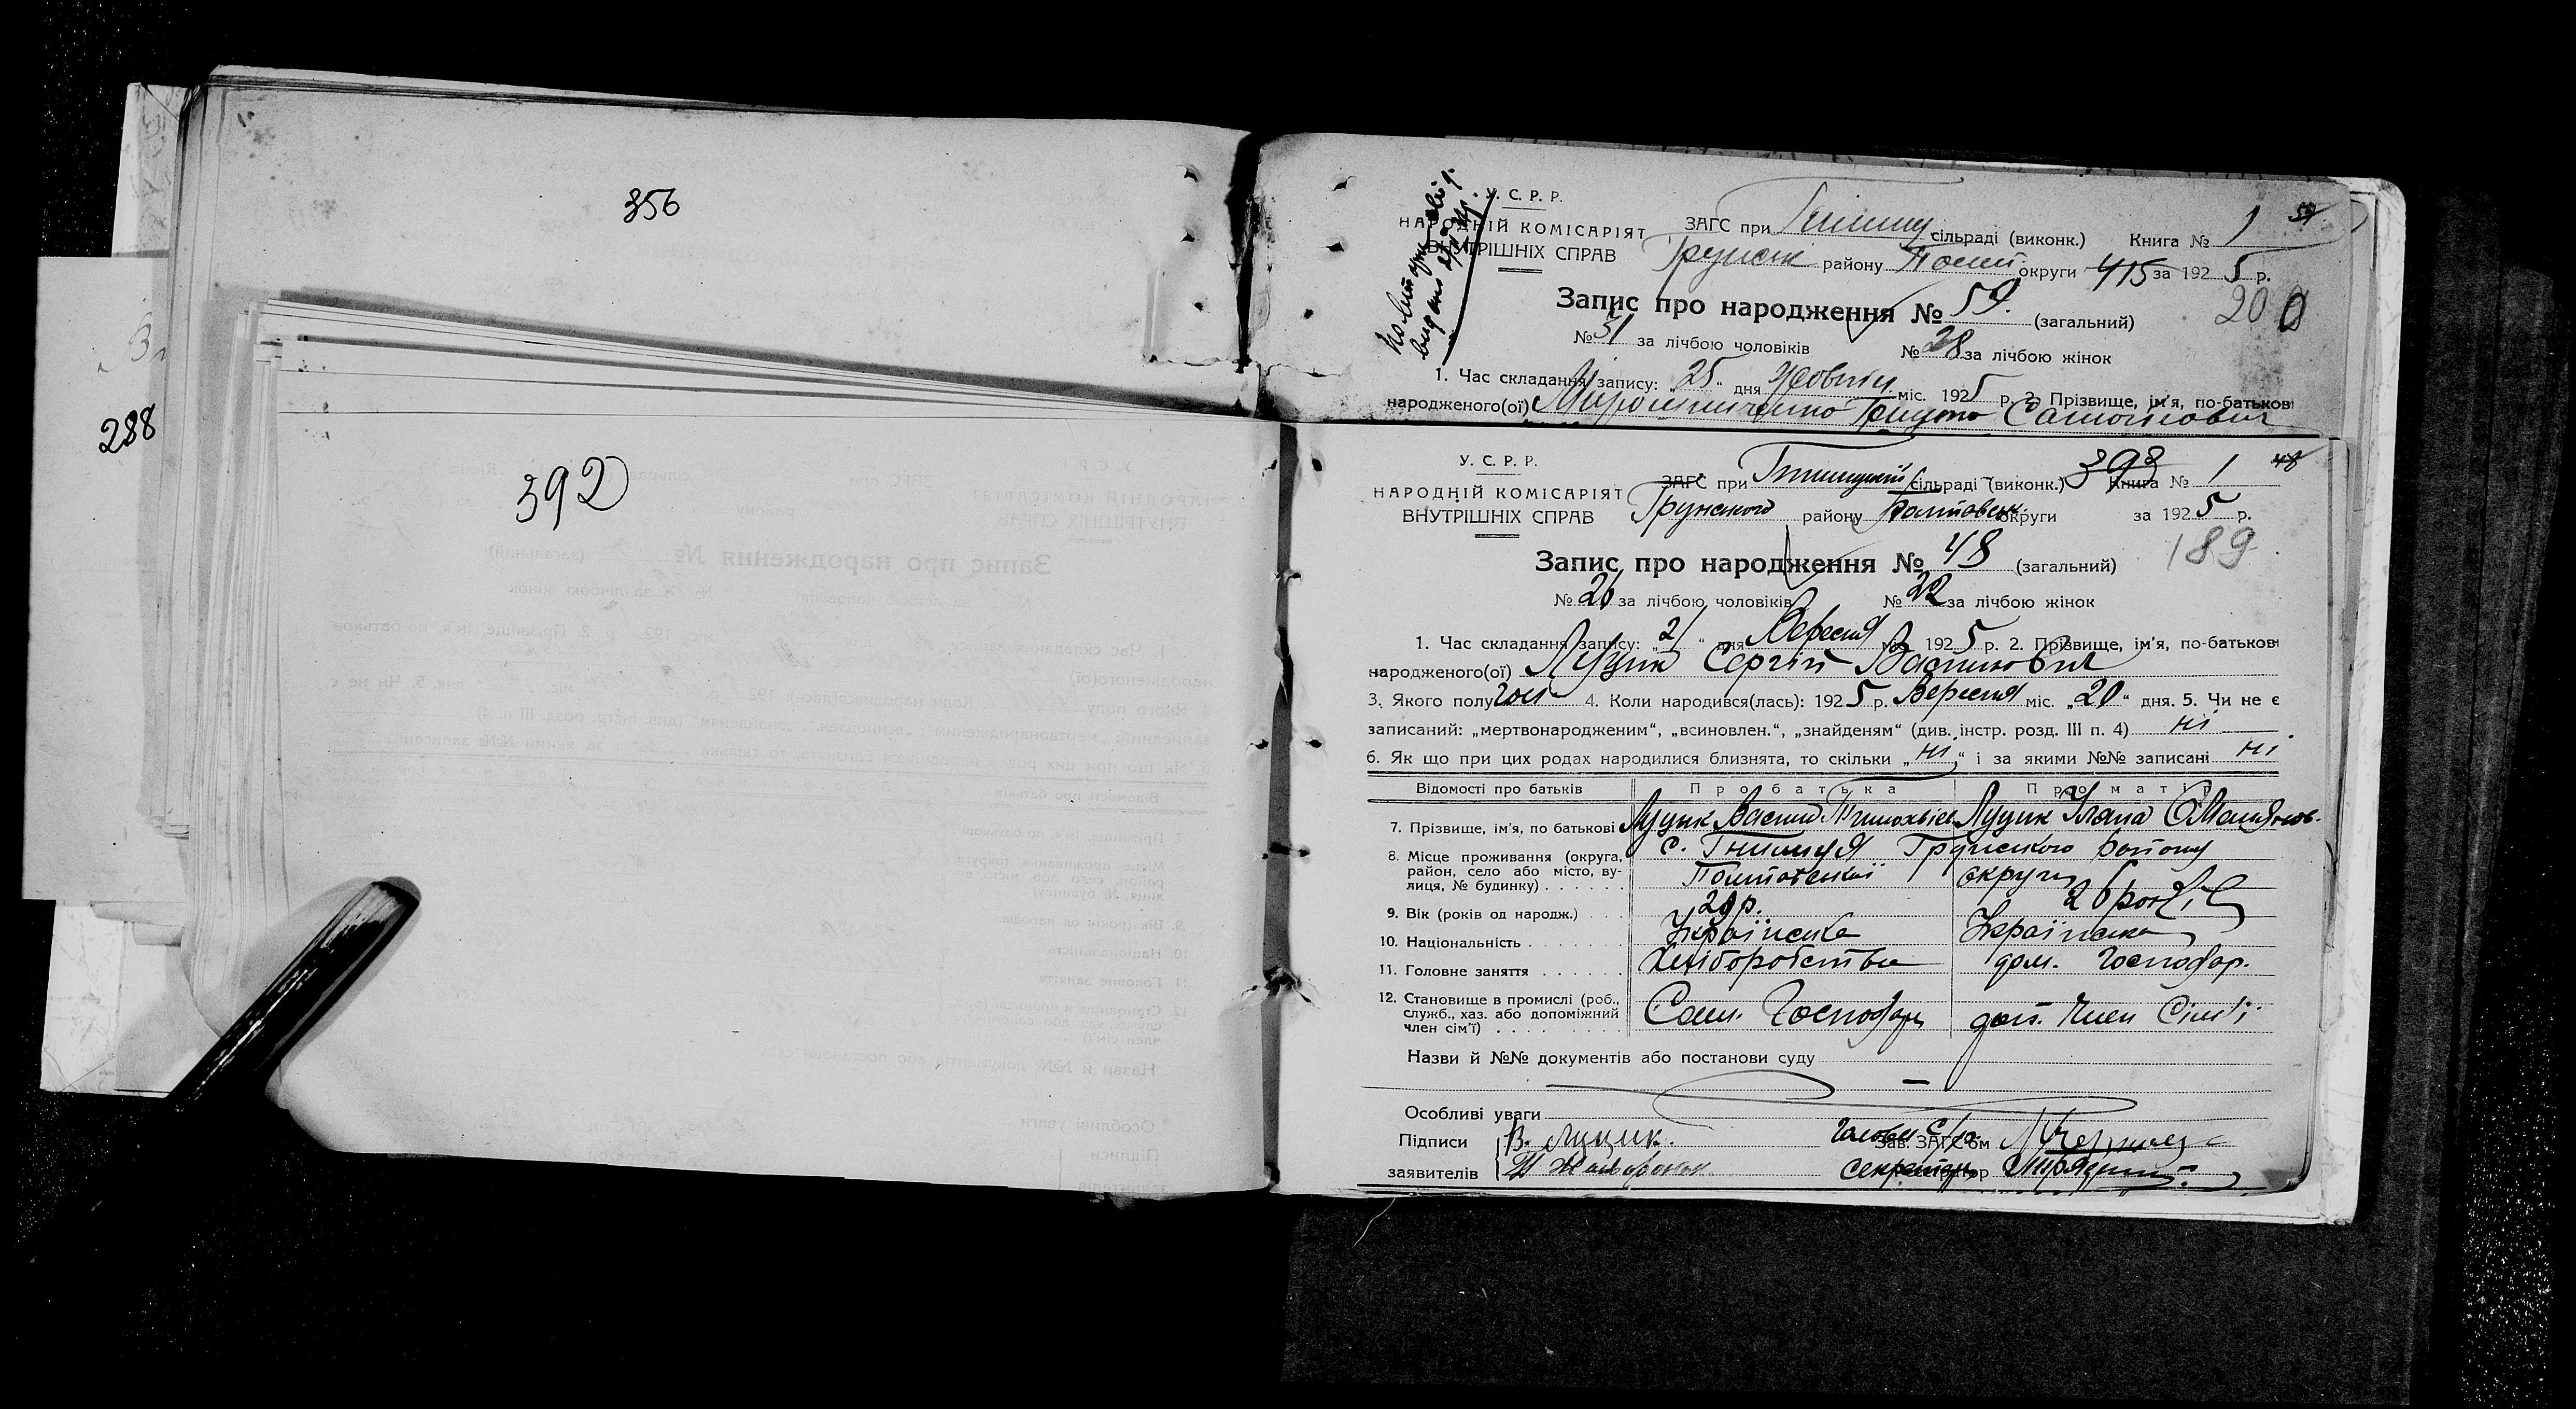 356
288
392
У. С. Р. Р.
НАРОДНІЙ КОМІСАРІЯТ
ВНУТРІШНІХ СПРАВ
ЗАГС при сільраді (виконк.) Книга № 1 59
Грунськ району Полт округи 415 за 1925 р.
Запис про народження № 59. (загальний) 200
№ 31 за лічбою чоловіків № 28 за лічбою жінок
1. Час складання запису: „25“ дня Жовтн міс. 1925 р. 2. Прізвище, ім'я, по-батькові
народженого(ої) Мирошниченко Самойлович
У. С. Р. Р.
НАРОДНІЙ КОМІСАРІЯТ
ВНУТРІШНІХ СПРАВ
ЗАГС при сільраді (виконк.) 393 Книга № 1 48
Грунського району Полтавськ округи за 1925 р.
Запис про народження № 48 (загальний) 189
№ 26 за лічбою чоловіків № 22 за лічбою жінок
1. Час складання запису: „21“ дня Вересня міс. 1925 р. 2. Прізвище, ім'я, по-батькові
народженого(ої) Луцик Сергій Васильович
3. Якого полу чол 4. Коли народився(лась): 1925 р. Вересня міс. „20“ дня. 5. Чи не є
записаний: „мертвонародженим“, „всиновлен.“, „знайденям“ (див. інстр. розд. III п. 4) ні
6. Як що при цих родах народилися близнята, то скільки „ні“ і за якими №№ записані ні
Відомості про батьків Про батька Про матір
7. Прізвище, ім'я, по батькові Луцик Васил Тимохвієв Луцик Уляна
8. Місце проживання (округа, район, село або місто, вулиця, № будинку) с. Гнилиця Грунського району
Полтавської округи
9. Вік (років од народж.) р. 20 років
10. Національність Українська Українська
11. Головне заняття Хліборобство дом. господар.
12. Становище в промислі (роб., служб., хаз. або допоміжний член сім'ї) Сам. Господарь доп. член Сім'ї
Назви й №№ документів або постанови суду
—
Особливі уваги
Підписи В. Луцик. Голова С/р Зав. ЗАГС'ом
заявителів Секретарь